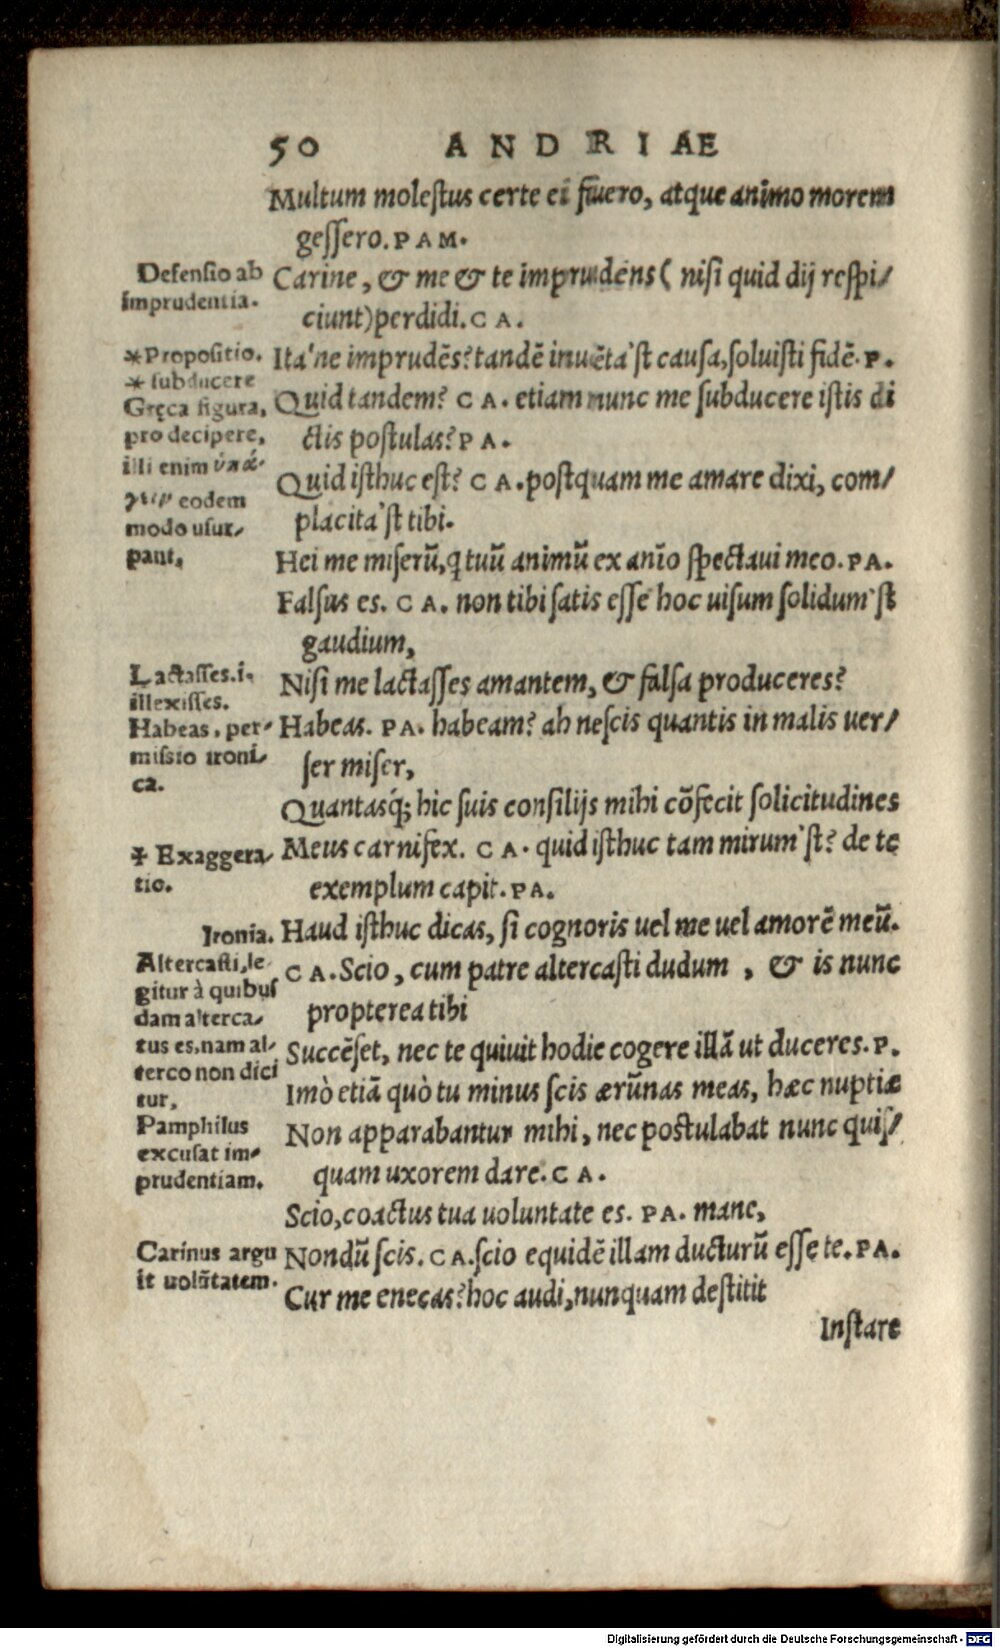 50 ANDRIAE
Multum molestus certe ei fuero, atque animo morem
gessero. PAM.
Defensio ab
imprudentia.
Carine, & me & te imprudens ( nisi quid dij respi/
ciunt) perdidi. CA.
*Propositio.
* subducere
Gręca figura,
pro decipere,
illi enim ὑπά-
γειν eodem
modo usur/
pant,
Ita'ne imprudēs? tandē inuēta'st causa, soluisti fidē. P.
Quid tandem? CA. etiam nunc me subducere istis di
ctis postulas? PA.
Quid isthuc est? CA. postquam me amare dixi, com/
placita'st tibi.
Hei me miserū, q tuū animū ex anīo spectaui meo. PA.
Falsus es. CA. non tibi satis esse hoc uisum solidum'st
gaudium,
Lactasses.i.
illexisses.
Nisi me lactasses amantem, & falsa produceres?
Habeas, per-
missio ironi/
ca.
Habeas. PA. habeam? ah nescis quantis in malis uer/
ser miser,
Quantasq; hic suis consilijs mihi cōfecit solicitudines
+ Exaggera/
tio.
Meus carnifex. CA. quid isthuc tam mirum'st? de te
exemplum capit. PA.
Ironia.
Haud isthuc dicas, si cognoris uel me uel amorē meū.
Altercasti, le-
gitur à quibus
dam alterca/
tus es, nam al-
terco non dici
tur,
CA. Scio, cum patre altercasti dudum , & is nunc
propterea tibi
Succēset, nec te quiuit hodie cogere illā ut duceres. P.
Imò etiā quò tu minus scis ærūnas meas, hæc nuptiæ
Pamphilus
excusat im-
prudentiam.
Non apparabantur mihi, nec postulabat nunc quis/
quam uxorem dare. CA.
Scio, coactus tua uoluntate es. PA. mane,
Carinus argu
it uolūtatem.
Nondū scis. CA. scio equidē illam ducturū esse te. PA.
Cur me enecas? hoc audi, nunquam destitit
Instare
Digitalisierung gefördert durch die Deutsche Forschungsgemeinschaft - DFG